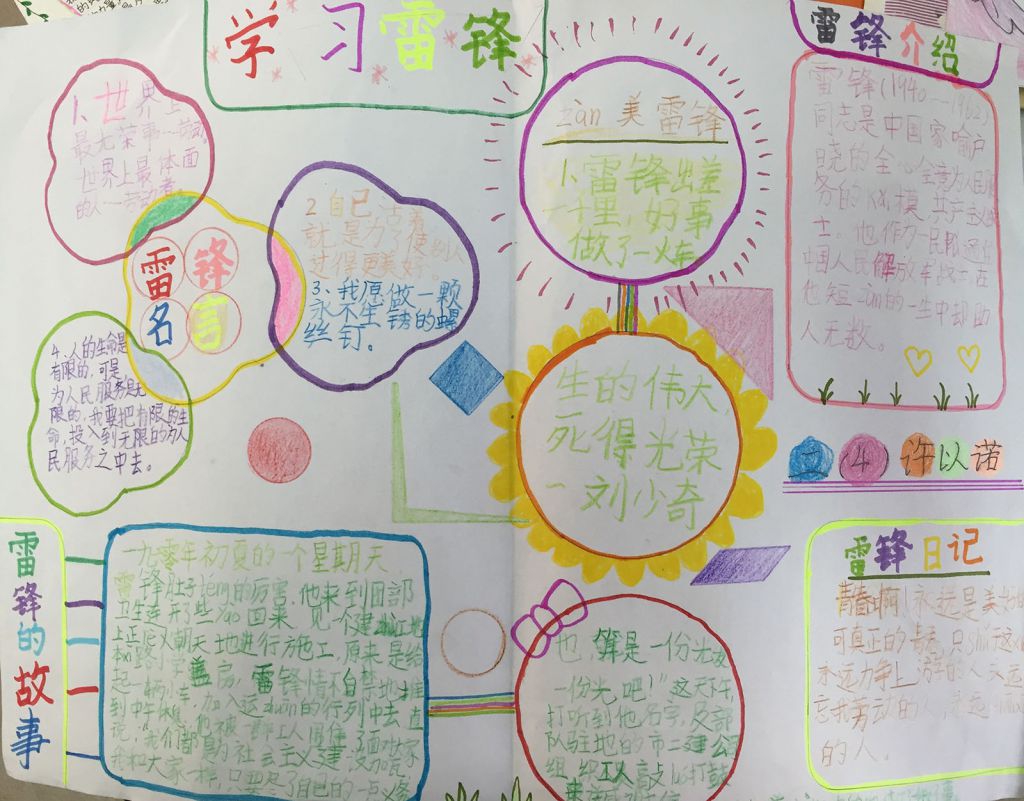 学习雷锋
1、世界上
最光荣事—劳动,
世界上最体面
的人—劳动者。
雷锋
名言
2 自己活着
就是为了使别人
过得更美好。
3、我愿做一颗
永不生锈的螺
丝钉。
4.人的生命是
有限的,可是,
为人民服务是无
限的,我要把有限的生
命,投入到无限的为人
民服务之中去。
zàn美雷锋
1、雷锋出差
一千里,好事
做了一火车
生的伟大,
死得光荣
一刘少奇
雷锋介绍
雷锋(1940—1962)
同志是中国家喻户
晓的全心全意为人民服
务的 模,共产主义
士。他作为一民
中国人民解放军战士在
他短 的一生中却助
人无数。
二(4)许以诺
雷锋日记
青春啊!永远是美好
可真正的青 ,只 这
永远力争上游的人,永远
忘我劳动的人,永远
的人。
雷锋的故事
一九零年初夏的一个星期天
雷锋肚子téng的厉害,他来到团部
卫生连开了些yào回来,见一个建 工地
上正 热 朝天地进行施工,原来是给
本 路小学盖房,雷锋情不自禁地推
起一辆小车,加入 的行列中去,直
到中午休 ,他被一 工人围住了,面对大家
说,“我们都 为社会主义建
我和大家一样,只要尽了自己的一点义务
也,算是一份光 发
一份光吧!”这天下午,
打听到他名字,及部
队驻地的市二建公司
组织工人敲 打鼓
来